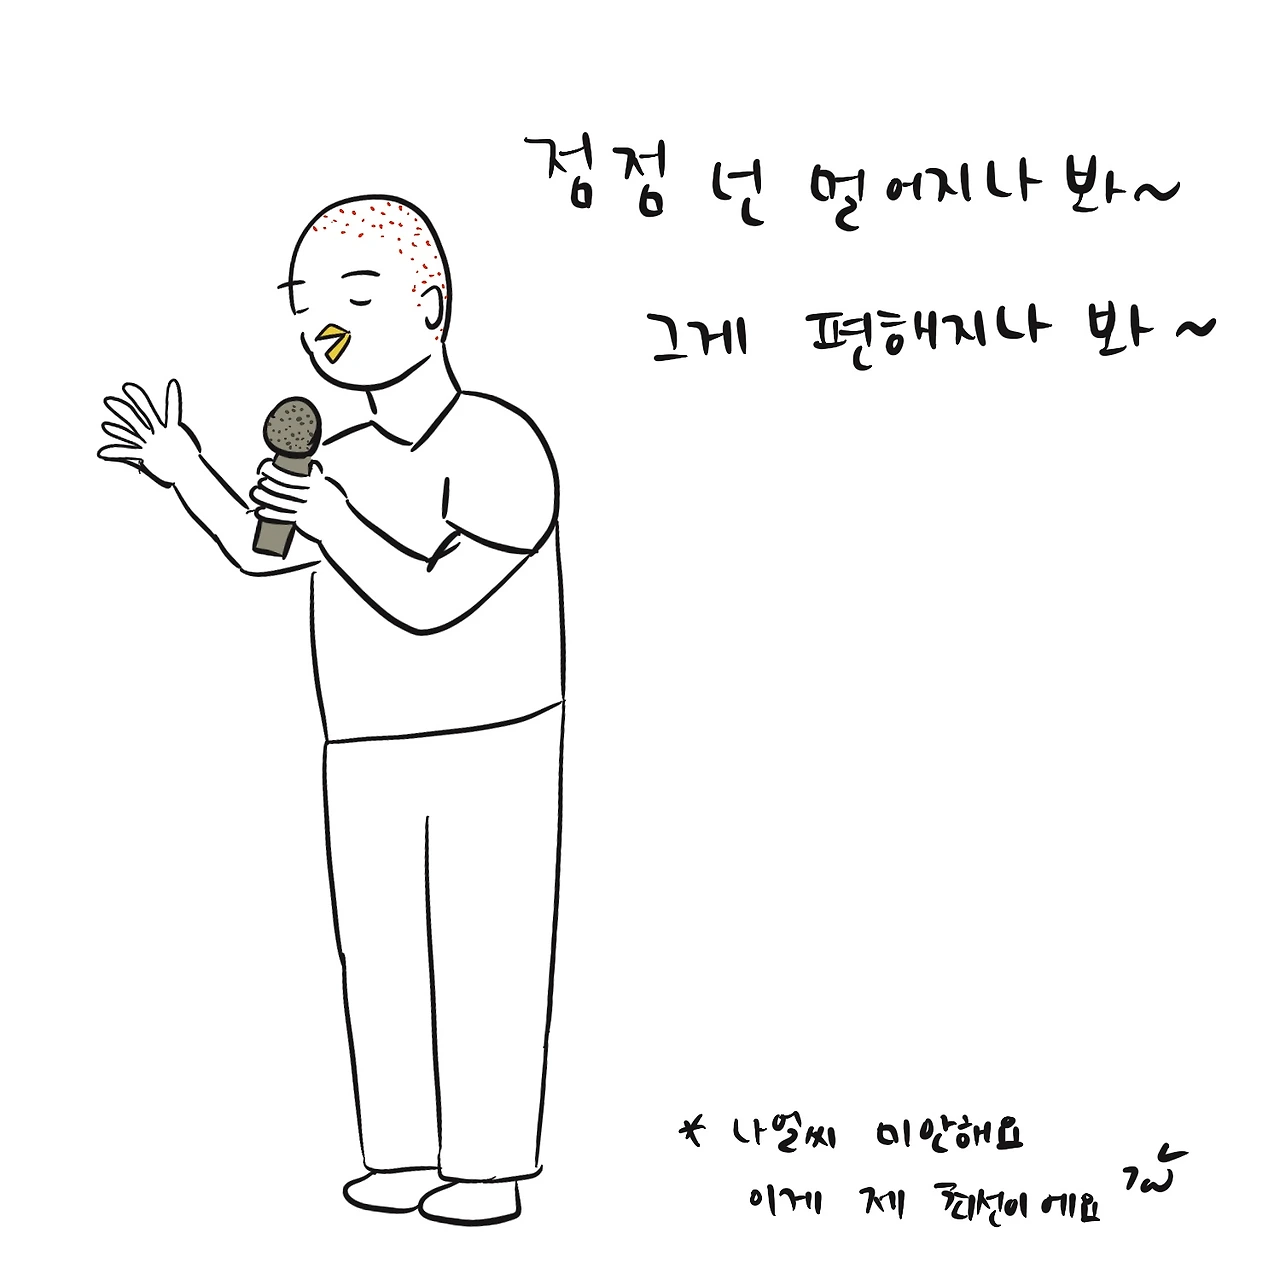 점점 넌 멀어지나 봐~
그게 편해지나 봐~
* 나얼씨 미안해요
이게 제 최선이에요